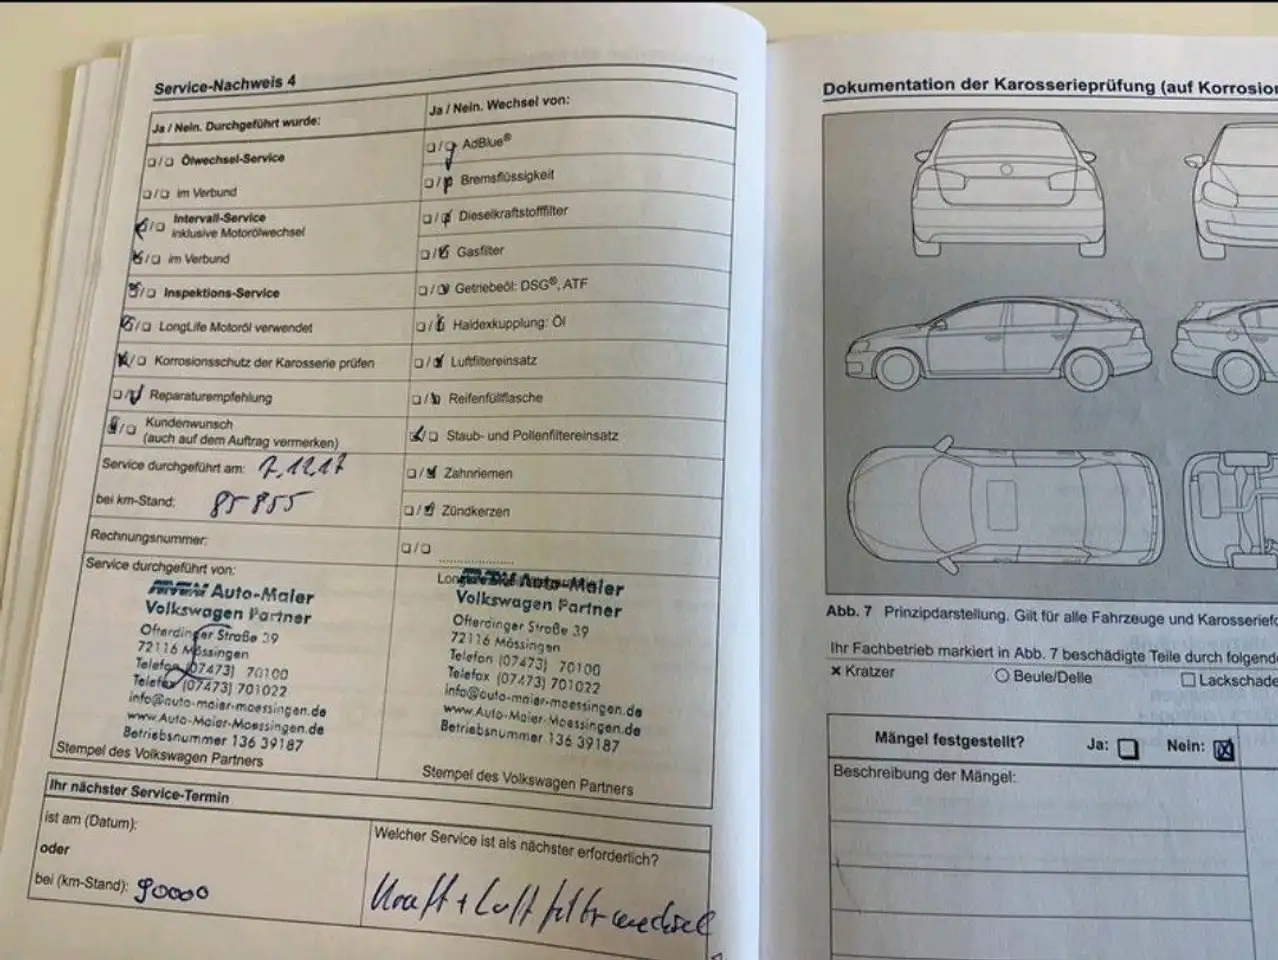 Service-Nachweis 4
Ja / Nein. Durchgeführt wurde:
Ölwechsel-Service
im Verbund
Intervall-Service
inklusive Motorölwechsel
im Verbund
Inspektions-Service
LongLife Motoröl verwendet
Korrosionsschutz der Karosserie prüfen
Reparaturempfehlung
Kundenwunsch
(auch auf dem Auftrag vermerken)
Service durchgeführt am: 7.12.17
bei km-Stand: 85 855
Rechnungsnummer:
Service durchgeführt von:
Auto-Maier
Volkswagen Partner
Ofterdinger Straße 39
72116 Mössingen
Telefon (07473) 70100
Telefax (07473) 701022
info@auto-maier-moessingen.de
www.Auto-Maier-Moessingen.de
Betriebsnummer 136 39187
Stempel des Volkswagen Partners
Ja / Nein. Wechsel von:
AdBlue®
Bremsflüssigkeit
Dieselkraftstofffilter
Gasfilter
Getriebeöl: DSG®, ATF
Haldexkupplung: Öl
Luftfiltereinsatz
Reifenfüllflasche
Staub- und Pollenfiltereinsatz
Zahnriemen
Zündkerzen
Auto-Maier
Volkswagen Partner
Ofterdinger Straße 39
72116 Mössingen
Telefon (07473) 70100
Telefax (07473) 701022
info@auto-maier-moessingen.de
www.Auto-Maier-Moessingen.de
Betriebsnummer 136 39187
Stempel des Volkswagen Partners
Ihr nächster Service-Termin
ist am (Datum):
oder
bei (km-Stand): 90000
Welcher Service ist als nächster erforderlich?
Kraft + Luftfilterwechsel
Dokumentation der Karosserieprüfung (auf Korrosion
Abb. 7 Prinzipdarstellung. Gilt für alle Fahrzeuge und Karosseriefo
Ihr Fachbetrieb markiert in Abb. 7 beschädigte Teile durch folgende
Kratzer
Beule/Delle
Lackschade
Mängel festgestellt? Ja: Nein:
Beschreibung der Mängel: